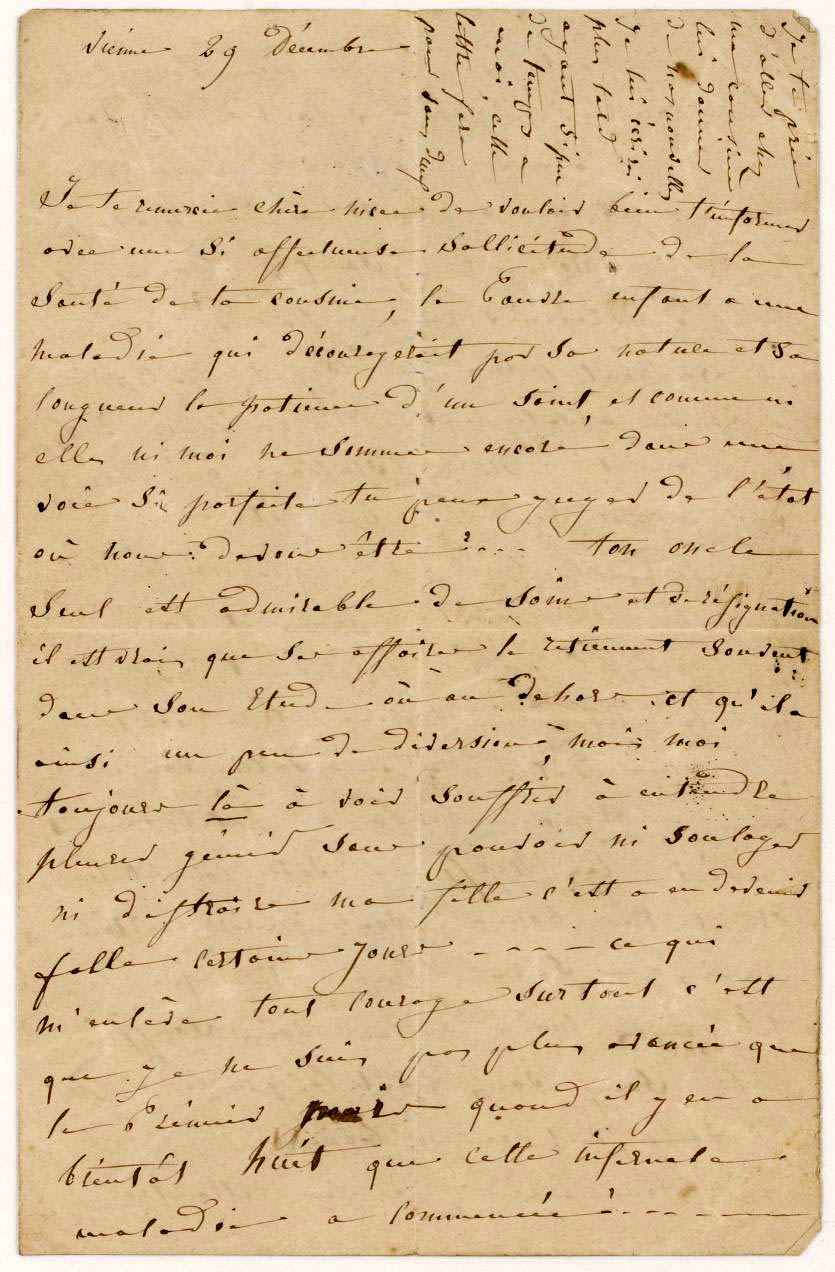 Vienne 29 Décembre
Je te prie
d'aller chez
ma cousine
lui donner
de nos nouvelles
je lui écrirai
plus tard
ayant si peu
de temps a
moi cette
lettre sera
pour vous deux
Je te remercie chère niece de vouloir bien t'informer
avec une si affectueuse sollicitude de la
Santé de ta cousine, la Pauvre enfant a une
maladie qui décourageroit par sa nature et sa
longueur la patience d'un Saint, et comme ni
elle, ni moi ne sommes encore dans une
voie si parfaite tu peux juger de l'état
où nous devons être ? ... ton oncle
Seul est admirable de soins et de résignation
il est vrai, que ses affaires le retiennent souvent
dans son Etude où au dehors et qu'il a
ainsi un peu de diversion, mais moi
toujours là à voir souffrir à entendre
pleurer gémir sans pouvoir ni soulager
ni distraire ma fille c'est a en devenir
folle certains jours - - - - ce qui
m'enlève tout courage surtout c'est
que je ne suis pas plus avancée que
le Prémier mois quand il y en a
bientôt huit que cette infernale
maladie a commencée ! - - - - -